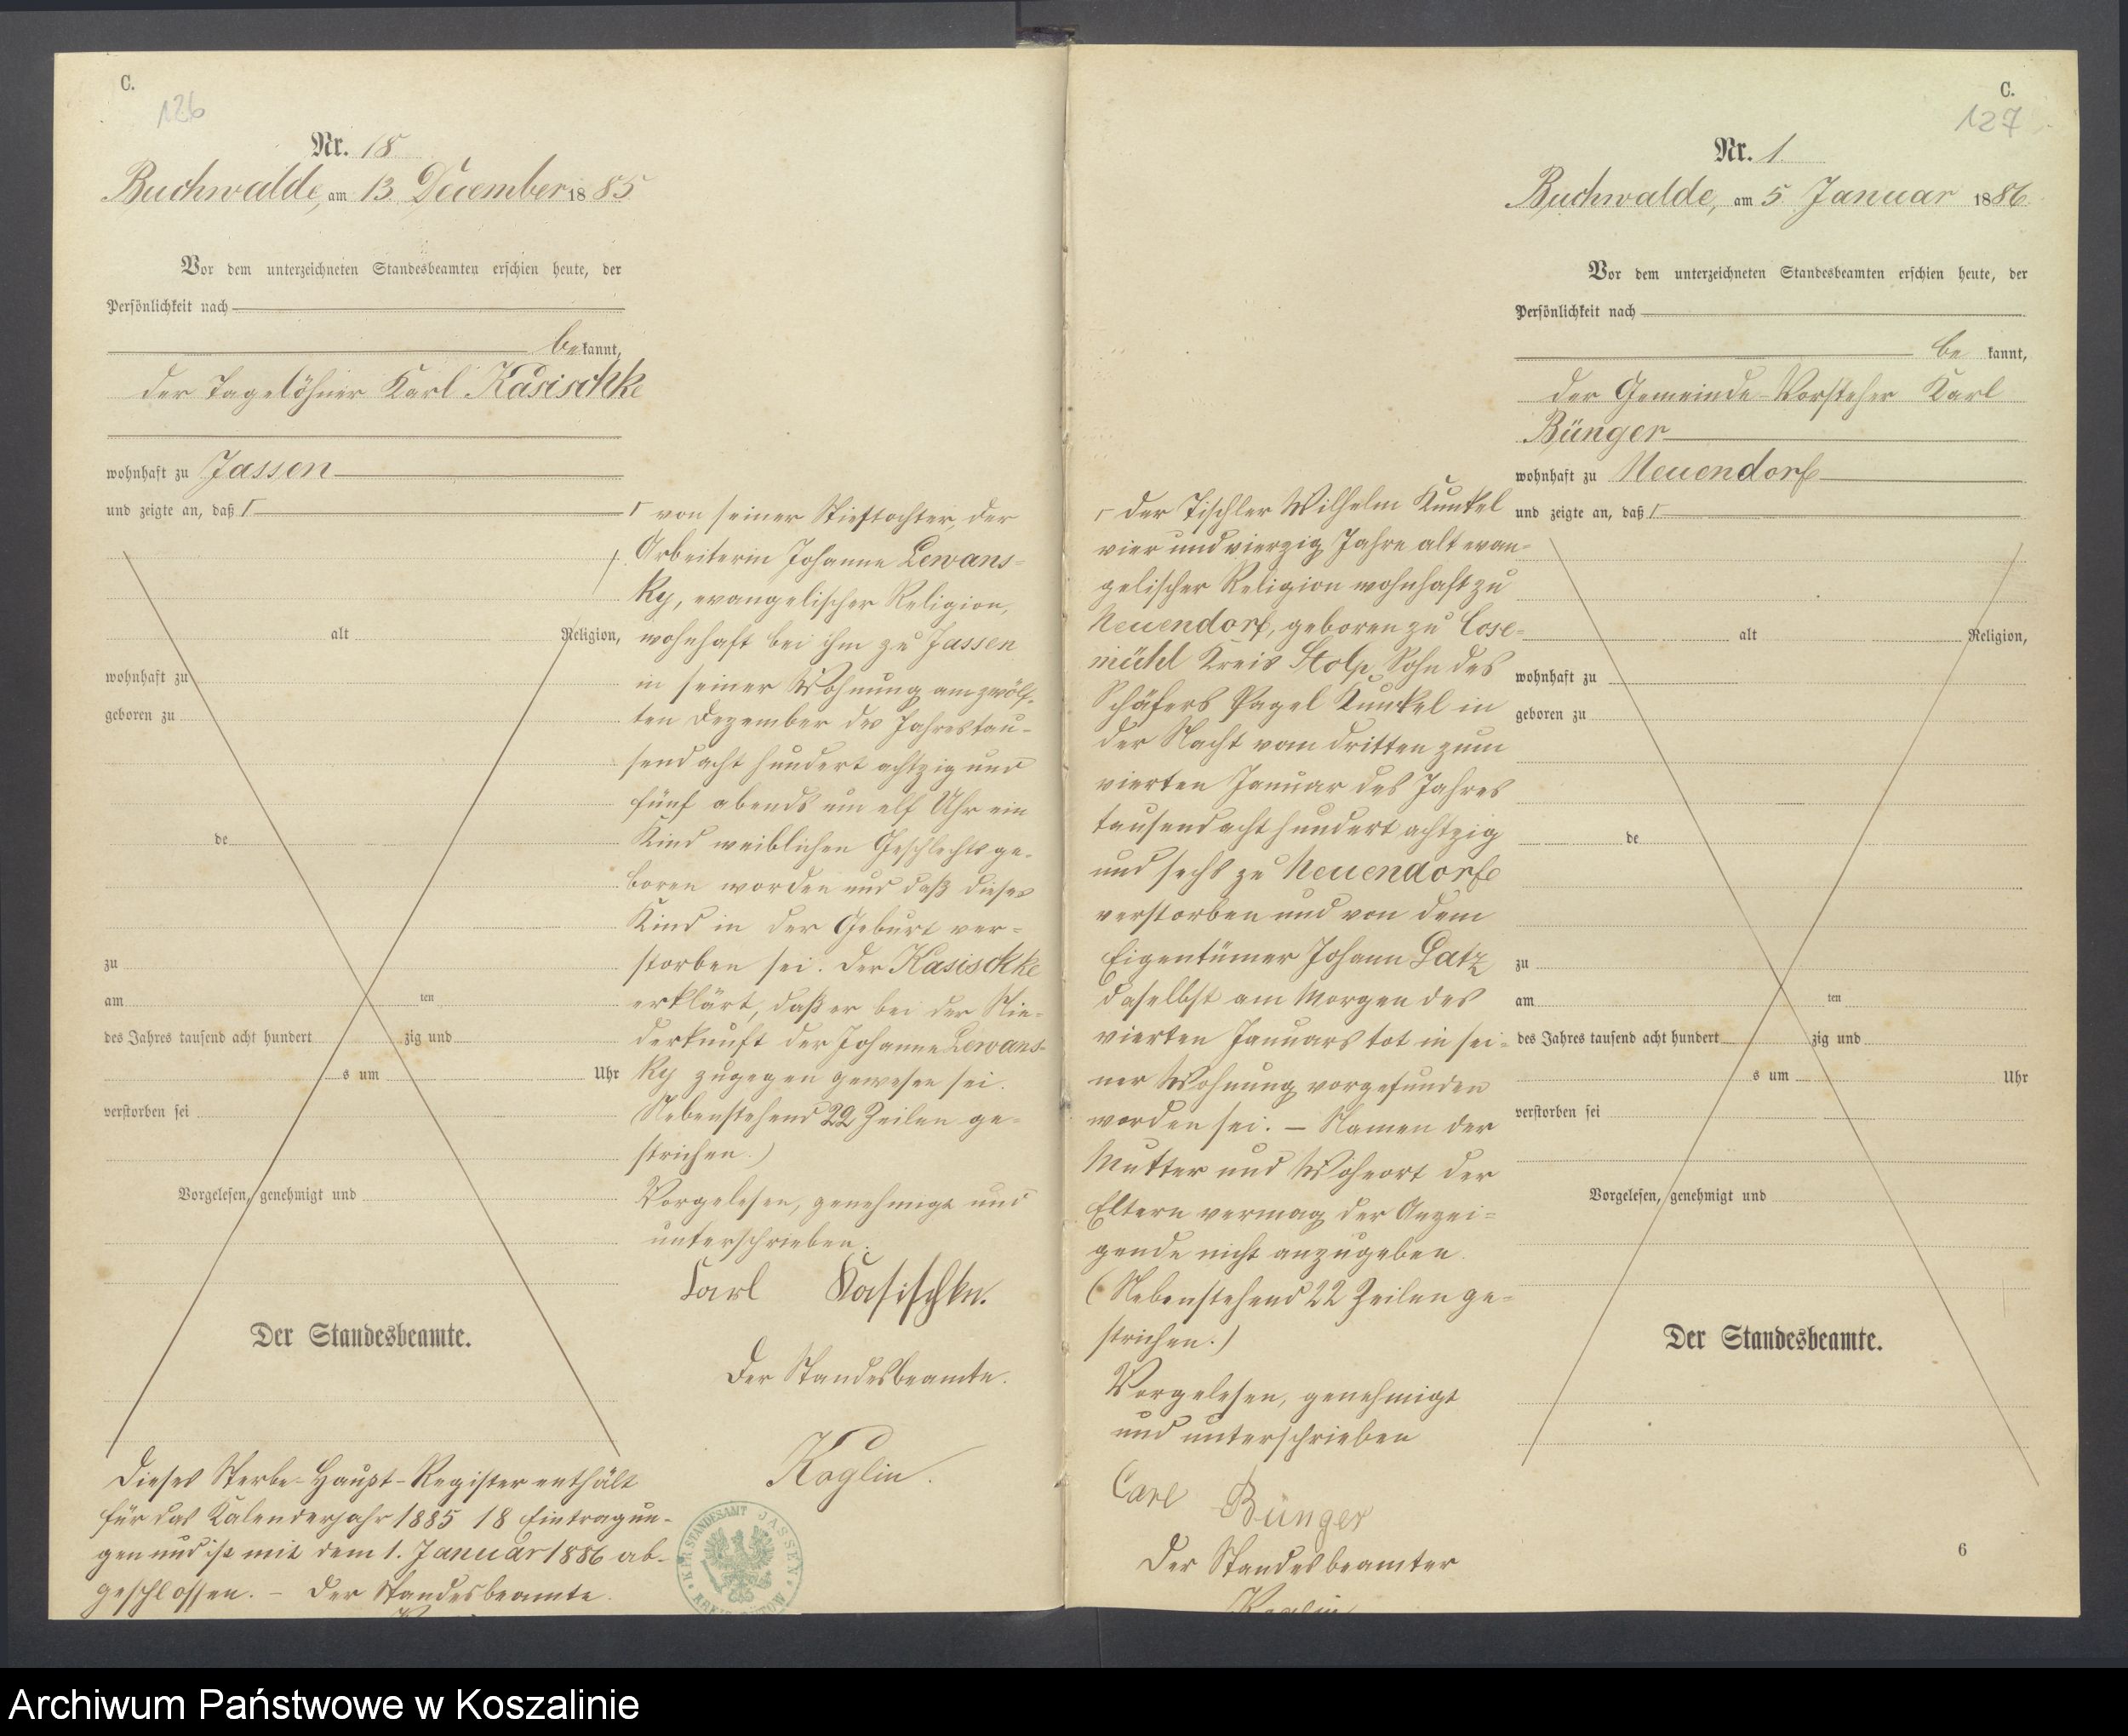 C.
126
Nr. 18
Buchwalde, am 13 December 1885
Vor dem unterzeichneten Standesbeamten erschien heute, der
Persönlichkeit nach
bekannt,
der Tagelöhner Karl Kasischke
wohnhaft zu Jassen
und zeigte an, daß
alt Religion,
wohnhaft zu
geboren zu
de
zu
am ten
des Jahres tausend acht hundert zig und
s um Uhr
verstorben sei
Vorgelesen, genehmigt und
Der Standesbeamte.
von seiner Stieftochter der
Arbeiterin Johanne Lewans=
ky, evangelischer Religion,
wohnhaft bei ihm zu Jassen
in seiner Wohnung am zwölf-
ten Dezember des Jahres tau-
send acht hundert achtzig und
fünf abends um elf Uhr ein
Kind weiblichen Geschlechts ge-
boren worden und daß dieses
Kind in der Geburt ver=
storben sei. Der Kasischke
erklärt, daß er bei der Nie-
derkunft der Johanne Lewans-
ky zugegen gewesen sei.
Nebenstehend 22 Zeilen ge-
strichen.)
Vorgelesen, genehmigt und
unterschrieben.
Carl Kasischke.
Der Standesbeamte.
Koglin.
Dieses Sterbe-Haupt-Register enthält
für das Kalenderjahr 1885 18 Eintragun-
gen und ist mit dem 1. Januar 1886 ab-
geschlossen. – Der Standesbeamte.
STANDESAMT JASSEN
C.
127
Nr. 1
Buchwalde, am 5. Januar 1886
Vor dem unterzeichneten Standesbeamten erschien heute, der
Persönlichkeit nach
be kannt,
der Gemeinde-Vorsteher Karl
Bünger
wohnhaft zu Neuendorf
und zeigte an, daß
der Tischler Wilhelm Kunkel
vier und vierzig Jahre alt evan-
gelischer Religion wohnhaft zu
Neuendorf, geboren zu Cose=
mühl Kreis Stolp Sohn des
Schäfers Pagel Kunkel in
der Nacht vom dritten zum
vierten Januar des Jahres
tausend acht hundert achtzig
und sechs zu Neuendorf
verstorben und von dem
Eigentümer Johann Latz
daselbst am Morgen des
vierten Januars tot in sei=
ner Wohnung vorgefunden
worden sei. – Namen der
Mutter und Wohnort der
Eltern vermag der Anzei=
gende nicht anzugeben.
(Nebenstehend 22 Zeilen ge=
strichen.)
Vorgelesen, genehmigt
und unterschrieben
Carl Bünger
Der Standesbeamter
Koglin
alt Religion,
wohnhaft zu
geboren zu
de
zu
am ten
des Jahres tausend acht hundert zig und
s um Uhr
verstorben sei
Vorgelesen, genehmigt und
Der Standesbeamte.
6
Archiwum Państwowe w Koszalinie